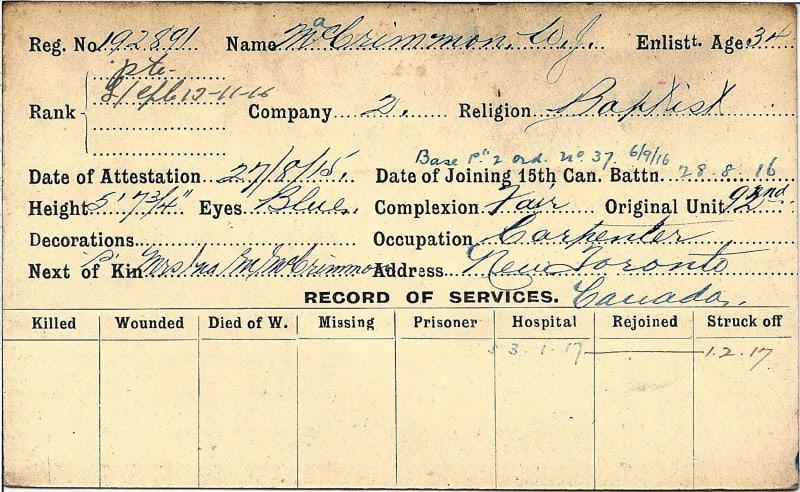 Reg. No. 192891 Name McCrimmon. W.J. Enlistt. Age 34
Pte.
Rank 12-11-16 Company 2. Religion Baptist
Base Pt 2 ord. No 37. 6/9/16
Date of Attestation 27/8/15. Date of Joining 15th Can. Battn. 28.8.16
Height 5' 7¾" Eyes Blue. Complexion Fair Original Unit 92nd.
Decorations Occupation Carpenter
Next of Kin Mrs M. McCrimmon Address New Toronto
RECORD OF SERVICES. Canada.
Killed Wounded Died of W. Missing Prisoner Hospital Rejoined Struck off
3.1.17 1.2.17